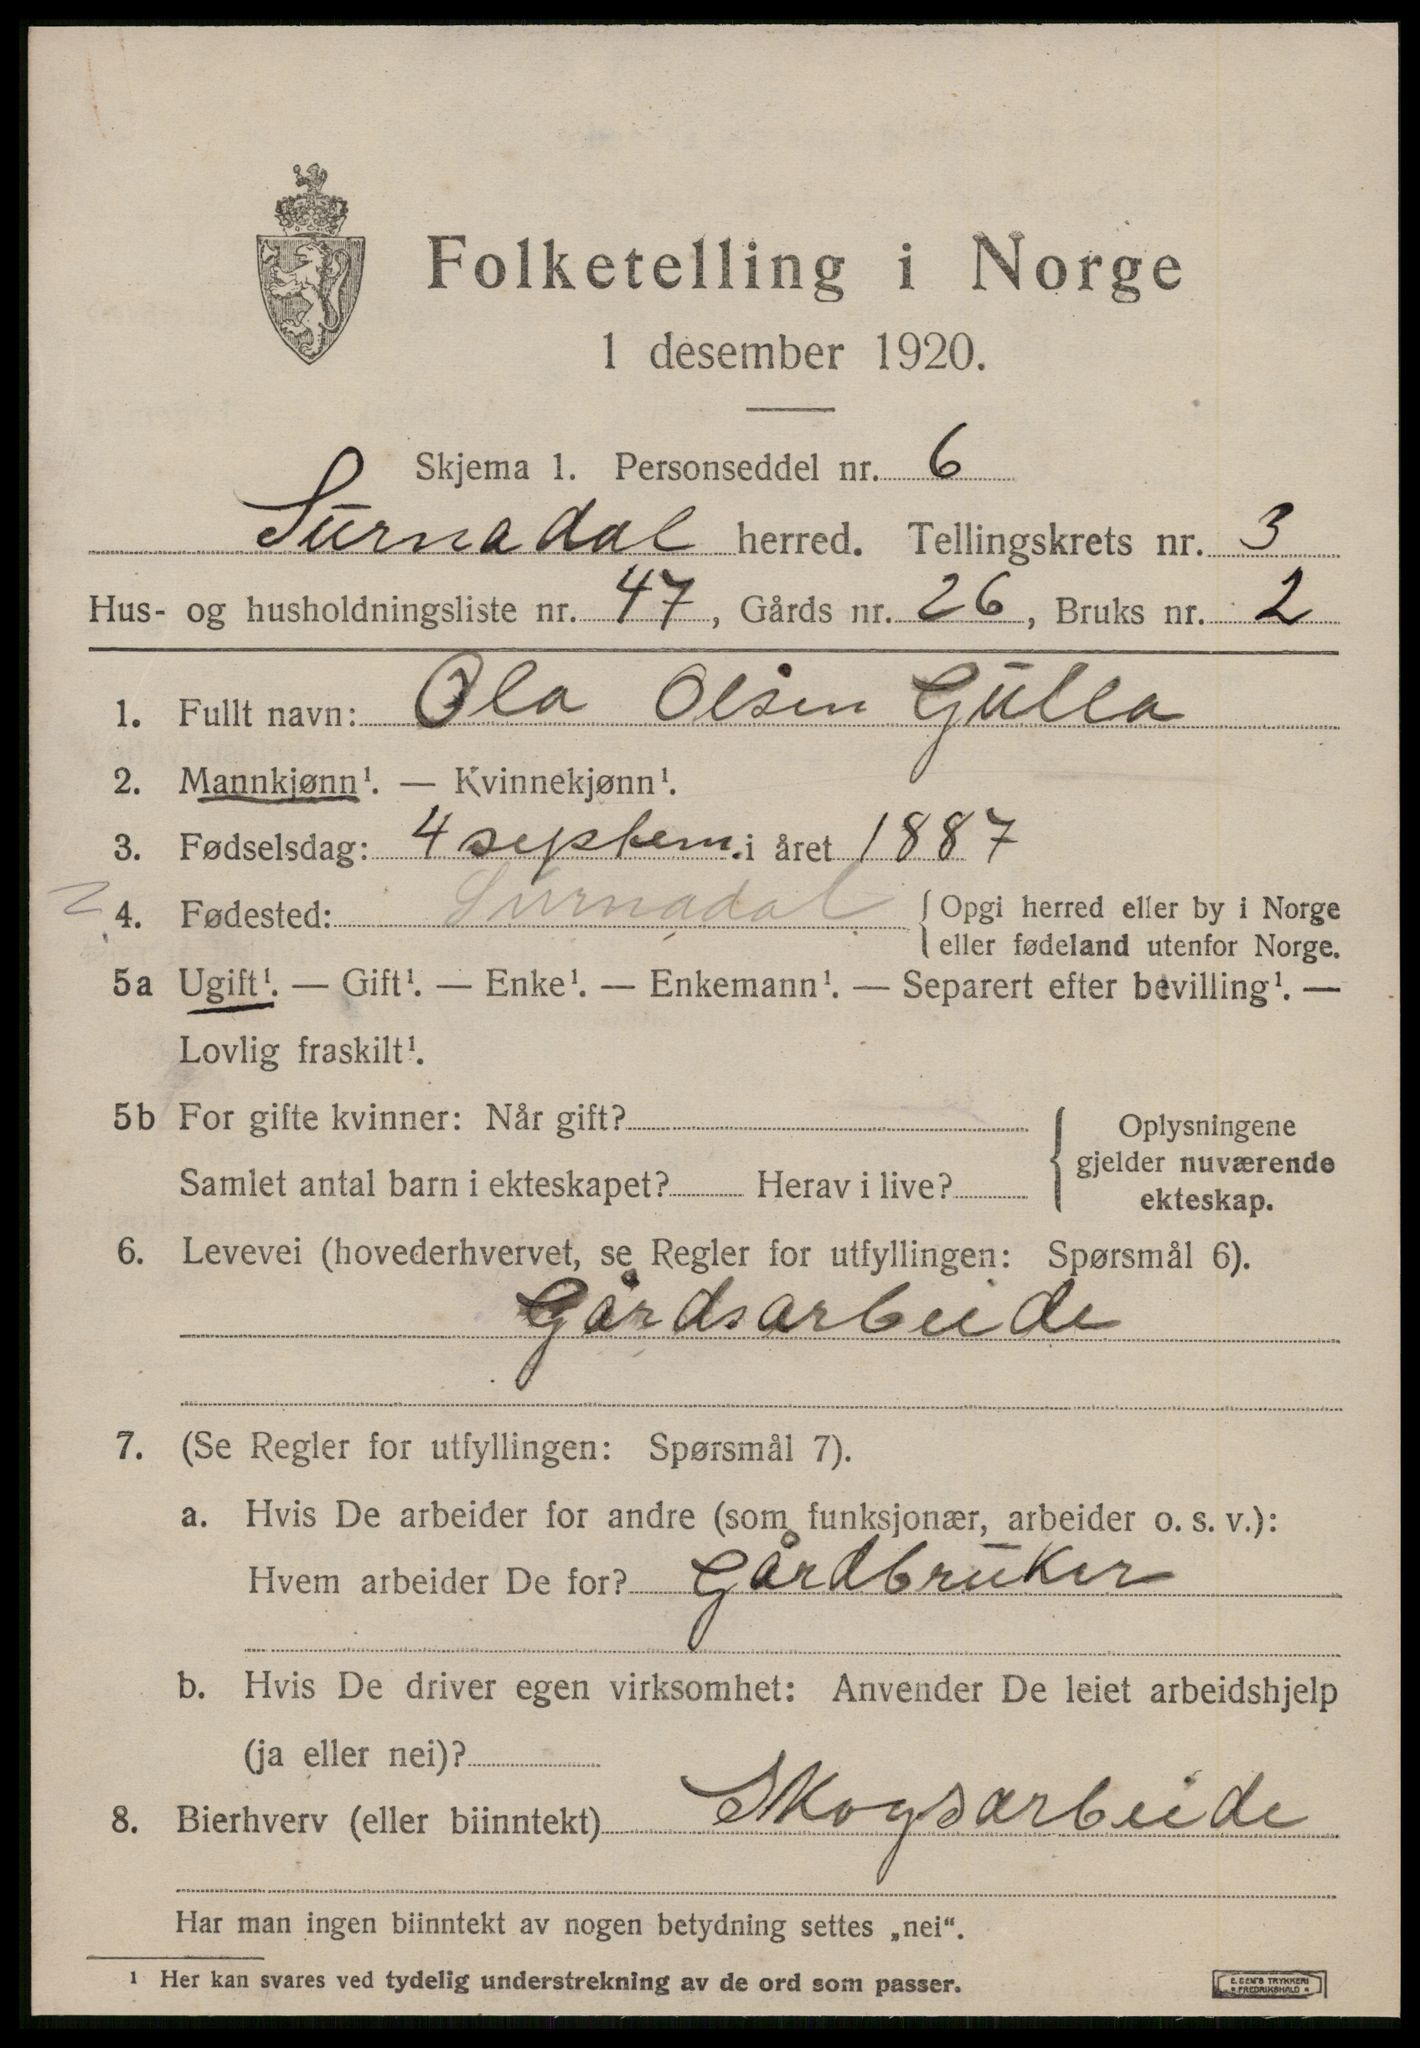 Folketelling i Norge
1 desember 1920.
Skjema 1. Personseddel nr. 6
Surnadal herred. Tellingskrets nr. 3
Hus- og husholdningsliste nr. 47, Gårds nr. 26, Bruks nr. 2
1. Fullt navn: Ola Olsen Gulla
2. Mannkjønn¹. — Kvinnekjønn¹.
3. Fødselsdag: 4 septem. i året 1887
4. Fødested: Surnadal { Opgi herred eller by i Norge
eller fødeland utenfor Norge.
5a Ugift¹. — Gift¹. — Enke¹. — Enkemann¹. — Separert efter bevilling¹. —
Lovlig fraskilt¹.
5b For gifte kvinner: Når gift?
Samlet antal barn i ekteskapet? Herav i live?
Oplysningene
gjelder nuværende
ekteskap.
6. Levevei (hovederhvervet, se Regler for utfyllingen: Spørsmål 6).
Gårdsarbeide
7. (Se Regler for utfyllingen: Spørsmål 7).
a. Hvis De arbeider for andre (som funksjonær, arbeider o. s. v.):
Hvem arbeider De for? Gårdbruker
b. Hvis De driver egen virksomhet: Anvender De leiet arbeidshjelp
(ja eller nei)?
8. Bierhverv (eller biinntekt) Skogsarbeide
Har man ingen biinntekt av nogen betydning settes „nei“.
1 Her kan svares ved tydelig understrekning av de ord som passer.
E. SEM'S TRYKKERI
FREDRIKSHALD